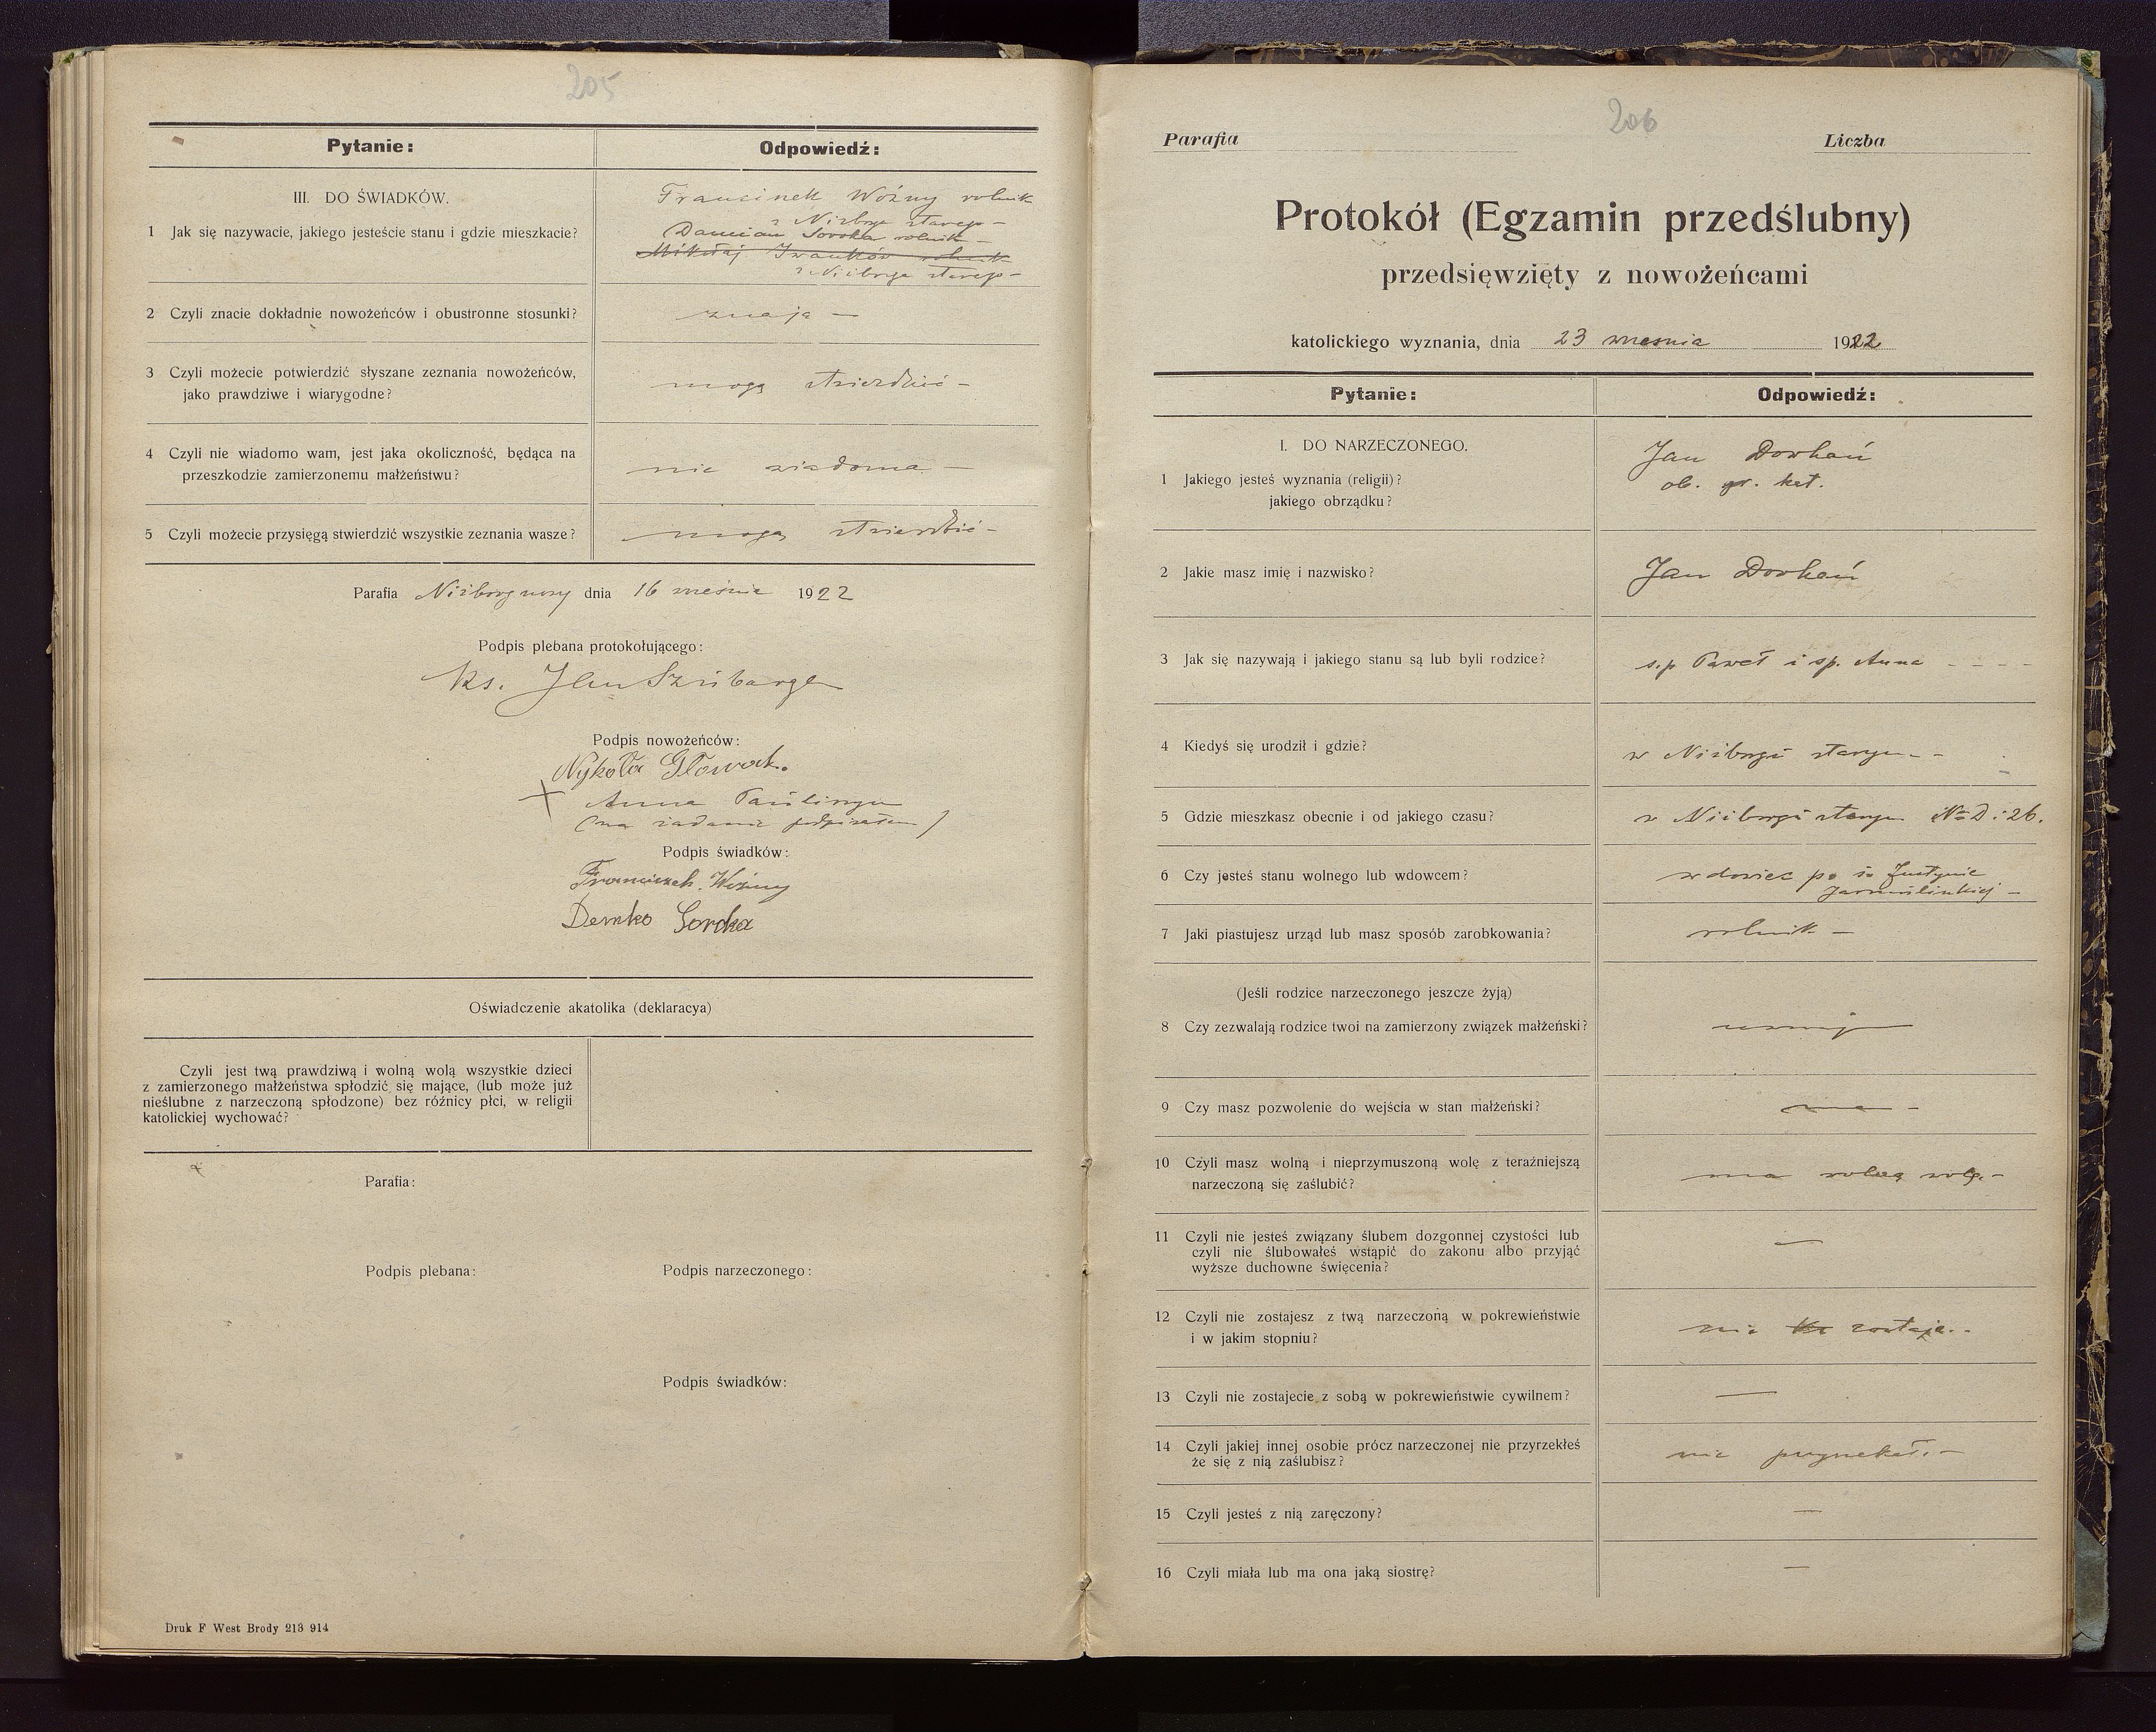 205
Pytanie: Odpowiedź:
III. DO ŚWIADKÓW.
1 Jak się nazywacie, jakiego jesteście stanu i gdzie mieszkacie?
Franciszek Woźny rolnik
z Niżborga starego –
Damian Soroka rolnik –
Mikołaj Iwanków rolnik
z Niżborga starego –
2 Czyli znacie dokładnie nowożeńców i obustronne stosunki?
znają –
3 Czyli możecie potwierdzić słyszane zeznania nowożeńców,
jako prawdziwe i wiarygodne?
mogą stwierdzić –
4 Czyli nie wiadomo wam, jest jaka okoliczność, będąca na
przeszkodzie zamierzonemu małżeństwu?
nie wiadoma –
5 Czyli możecie przysięgą stwierdzić wszystkie zeznania wasze?
mogą stwierdzić –
Parafia Niżborg nowy dnia 16 września 1922
Podpis plebana protokołującego:
Ks. Jan
Podpis nowożeńców:
Nykoła Głowak.
+ Anna
(na żądanie podpisałem)
Podpis świadków:
Franciszek Woźny
Demko Soroka
Oświadczenie akatolika (deklaracya)
Czyli jest twą prawdziwą i wolną wolą wszystkie dzieci
z zamierzonego małżeństwa spłodzić się mające, (lub może już
nieślubne z narzeczoną spłodzone) bez różnicy płci, w religii
katolickiej wychować?
Parafia:
Podpis plebana: Podpis narzeczonego:
Podpis świadków:
Druk F West Brody 213 914
206
Parafia Liczba
Protokół (Egzamin przedślubny)
przedsięwzięty z nowożeńcami
katolickiego wyznania, dnia 23 września 1922
Pytanie: Odpowiedź:
I. DO NARZECZONEGO.
1 Jakiego jesteś wyznania (religii)?
jakiego obrządku?
Jan Dowhań
ob. gr. kat.
2 Jakie masz imię i nazwisko?
Jan Dowhań
3 Jak się nazywają i jakiego stanu są lub byli rodzice?
ś.p Paweł i śp. Anna - - - -
4 Kiedyś się urodził i gdzie?
w Niżborgu starym - -
5 Gdzie mieszkasz obecnie i od jakiego czasu?
w Niżborgu starym No D: 26.
6 Czy jesteś stanu wolnego lub wdowcem?
wdowiec po śp Justynie
7 Jaki piastujesz urząd lub masz sposób zarobkowania?
rolnik –
(Jeśli rodzice narzeczonego jeszcze żyją)
8 Czy zezwalają rodzice twoi na zamierzony związek małżeński?
9 Czy masz pozwolenie do wejścia w stan małżeński?
ma –
10 Czyli masz wolną i nieprzymuszoną wolę z teraźniejszą
narzeczoną się zaślubić?
ma wolną wolę –
11 Czyli nie jesteś związany ślubem dozgonnej czystości lub
czyli nie ślubowałeś wstąpić do zakonu albo przyjąć
wyższe duchowne święcenia?
—
12 Czyli nie zostajesz z twą narzeczoną w pokrewieństwie
i w jakim stopniu?
nie zostaje. -
13 Czyli nie zostajecie z sobą w pokrewieństwie cywilnem?
—
14 Czyli jakiej innej osobie prócz narzeczonej nie przyrzekłeś
że się z nią zaślubisz?
nie przyrzekał. –
15 Czyli jesteś z nią zaręczony?
—
16 Czyli miała lub ma ona jaką siostrę?
—